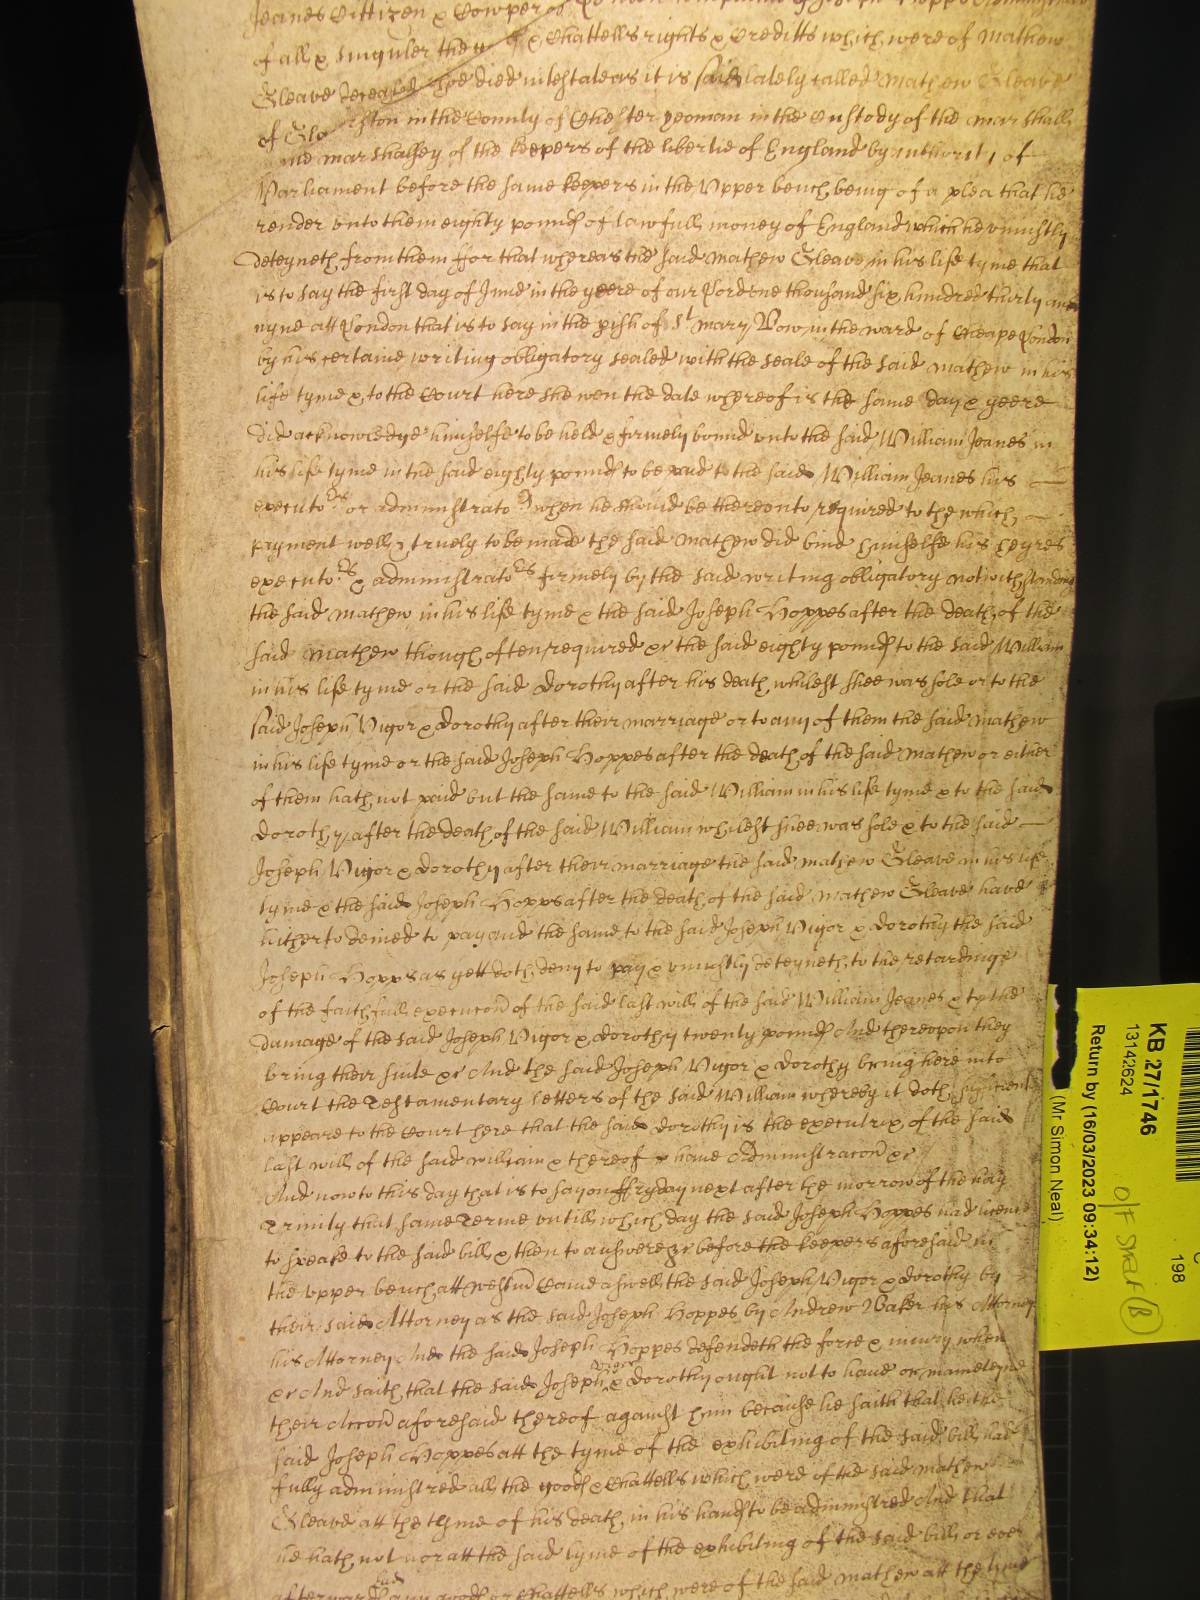 Jeanes Cittizen & Cowper of
of all & singuler the & Chattells rights & Creditts which were of Mathew
Gleave deceased whoe died intestate as it is said lately called Mathew Gleave
of Gla rston in the County of Chester yeoman in the Custody of the Marshall
the Marshalsey of the keepers of the libertie of England by authority of
Parliament before the same keepers in the Vpper bench being of a plea that he
render vnto them eighty pounds of lawfull money of England which he vniustly
deteyneth from them ffor that whereas the said Mathew Gleave in his life tyme that
is to say the first day of June in the yeere of our Lord one thousand six hundred thirty and
nyne att London that is to say in the pish of St Mary Bow in the ward of Cheape London
by his certaine writing obligatory sealed with the seale of the said Mathew in his
life tyme & to the Court here shewen the date whereof is the same day & yeere
did acknowledge himselfe to be held & firmely bound vnto the said William Jeanes in
his life tyme in the said eighty pounds to be paid to the said William Jeanes his
executors or administrators when he should be therevnto required to the which
payment well & truely to be made the said Mathew did bind himselfe his heyres
executors & administrators firmely by the said writing obligatory notwithstanding
the said Mathew in his life tyme & the said Joseph Hoppes after the death of the
said Mathew though often required &c the said eighty pounds to the said William
in his life tyme or the said Dorothy after his death whilest shee was sole or to the
said Joseph Vigor & Dorothy after their marriage or to any of them the said Mathew
in his life tyme or the said Joseph Hoppes after the death of the said Mathew or either
of them hath not paid but the same to the said William in his life tyme & to the said
Dorothy after the death of the said William whilest shee was sole & to the said
Joseph Vigor & Dorothy after their marriage the said Mathew Gleave in his life
tyme & the said Joseph Hopps after the death of the said Mathew Gleave have
hitherto denied to pay and the same to the said Joseph Vigor & Dorothy the said
Joseph Hopps as yett doth deny to pay & vniustly deteyneth to the retardinge
of the faithfull execucon of the said last will of the said William Jeanes & to the
damage of the said Joseph Vigor & Dorothy twenty pounds And therevpon they
bring their suite &c And the said Joseph Vigor & Dorothy bring here into
Court the Testamentary letters of the said William whereby it doth sufficiently
appeare to the Court here that the said Dorothy is the executrix of the said
last will of the said William & thereof & have Administracon &c
And now to this day that is to say on ffryday next after the morrow of the holy
Trinity that same Terme vntill which day the said Joseph Hoppes had licence
to speake to the said bill & then to answere &c before the keepers aforesaid in
the vpper bench att Westm Came aswell the said Joseph Vigor & Dorothy by
their said Attorney as the said Joseph Hoppes by Andrew Baker his Attorney
his Attorney And the said Joseph Hoppes defendeth the force & iniury when
&c And saith that the said Joseph Vigor & Dorothy ought not to have or mainteyne
their Accon aforesaid thereof against him because he saith that he the
said Joseph Hoppes att the tyme of the exhibiting of the said bill had
fully administred all the goods & Chattells which were of the said Mathew
Gleave att the tyme of his death in his hands to be administred And that
he hath not nor att the said tyme of the exhibiting of the said bill or ever
afterward had any goods or Chattells which were of the said Mathew att the tyme
KB 27/1746
13142624
Return by (16/03/2023 09:34:12)
(Mr Simon Neal)
198